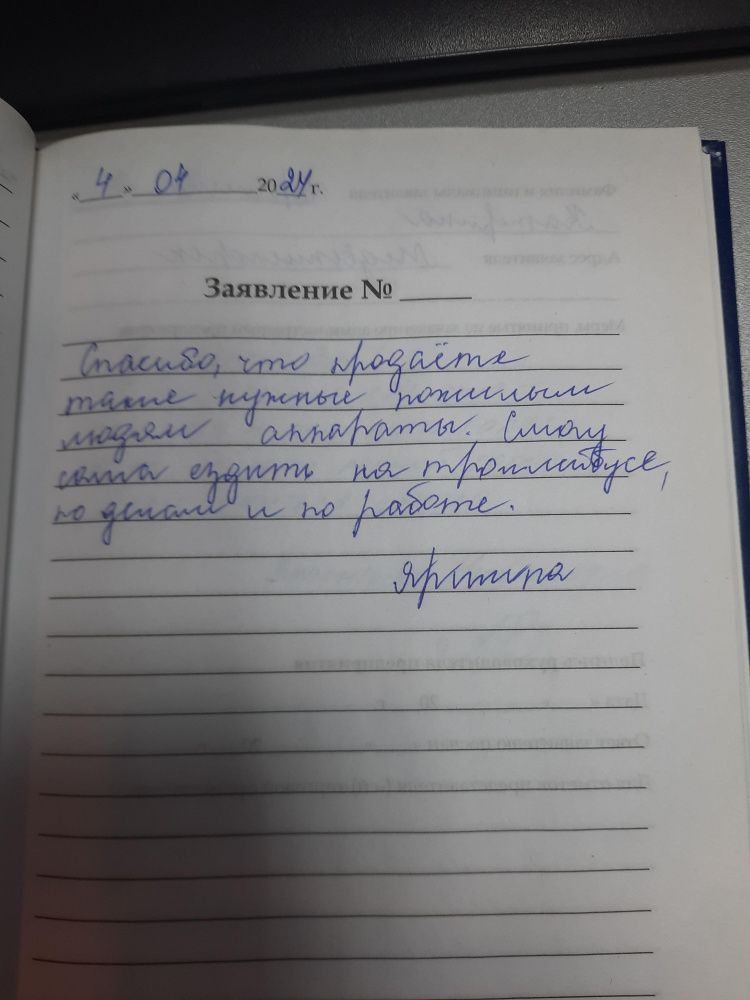 « 4 » 04 2024 г.
Заявление № ______
Спасибо, что продаёте
такие нужные пожилым
людям аппараты. Смогу
сама ездить на троллейбусе,
по делам и по работе.